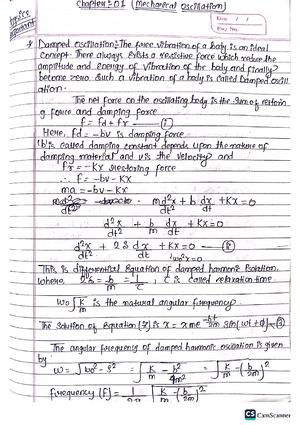 Chapter:-01 (Mechanical oscillation)
Topics
Date / /
Page No.
Damped Oscillation:- The free vibration of a body is an ideal
concept. There always exists a resistive force which reduce the
amplitude and energy of vibration of the body and finally
become zero. Such a vibration of a body is called Damped oscill
ation.
The net force on the oscillating body is the sum of restorin
g force and damping force
f = fd + fr — (1)
Here, fd = -bv is damping force
'b' is called damping constant depends upon the nature of
damping material and v is the velocity and
fr = -Kx restoring force
∴ f = -bv - Kx
ma = -bv - Kx
md²x/dt² + b dx/dt + Kx = 0
d²x/dt² + b/m dx/dt + Kx = 0
d²x/dt² + 2S dx/dt + Kx = 0
This is differential equation of damped harmonic
where, 2S = b/m = 1/τ, τ is called relaxation time
wo √K/m is the natural angular frequency.
The solution of equation is x = xme^-bt/2m sin(wt + φ)
The angular frequency of damped harmonic oscillation is given
by
w = √wo² - S² = √K/m - b²/4m² = √K/m - (b/2m)²
frequency (f) = 1/2π √K/m - (b/2m)²
CS CamScanner